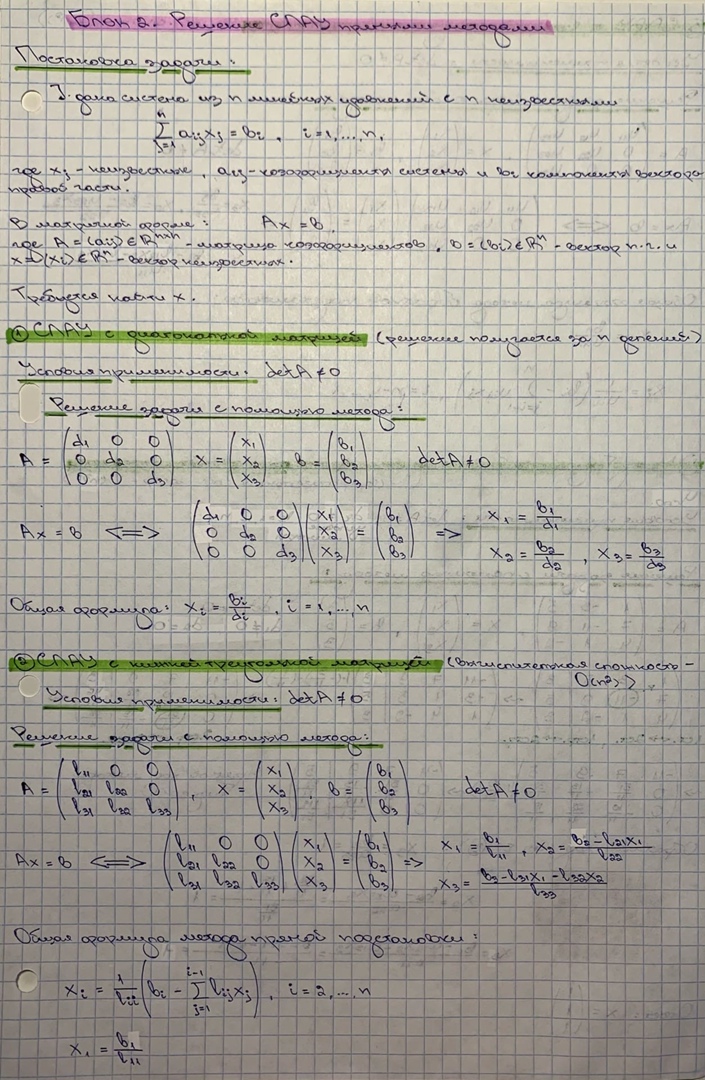 Блок 2. Решение СЛАУ прямыми методами
Постановка задачи:
J. дана система из n линейных уравнений с n неизвестными
∑_{j=1}^{n} a_{ij}x_j = b_i , i=1,...,n,
где x_j - неизвестные, a_{ij}-коэффициенты системы и b_i компоненты вектора
правой части.
В матричной форме: Ax = b,
где A = (a_{ij}) ∈ ℝ^{n×n} - матрица коэффициентов, b = (b_i) ∈ ℝ^n - вектор п.ч. и
x = (x_i) ∈ ℝ^n - вектор неизвестных.
Требуется найти x.
① СЛАУ с диагональной матрицей (решение получается за n делений)
Условия применимости: detA ≠ 0
Решение задачи с помощью метода:
A = (d_1 0 0; 0 d_2 0; 0 0 d_3) x = (x_1; x_2; x_3) b = (b_1; b_2; b_3) detA ≠ 0
Ax = b <=> (d_1 0 0; 0 d_2 0; 0 0 d_3)(x_1; x_2; x_3) = (b_1; b_2; b_3) => x_1 = b_1/d_1
x_2 = b_2/d_2 , x_3 = b_3/d_3
Общая формула: x_i = b_i/d_i , i = 1,...,n
② СЛАУ с нижней треугольной матрицей (вычислительная сложность -
O(n²).)
Условия применимости: detA ≠ 0
Решение задачи с помощью метода:
A = (l_11 0 0; l_21 l_22 0; l_31 l_32 l_33) , x = (x_1; x_2; x_3) , b = (b_1; b_2; b_3) detA ≠ 0
Ax = b <=> (l_11 0 0; l_21 l_22 0; l_31 l_32 l_33)(x_1; x_2; x_3) = (b_1; b_2; b_3) => x_1 = b_1/l_11 , x_2 = (b_2 - l_21x_1)/l_22
, x_3 = (b_3 - l_31x_1 - l_32x_2)/l_33
Общая формула метода прямой подстановки:
x_i = 1/l_{ii} (b_i - ∑_{j=1}^{i-1} l_{ij}x_j) , i = 2,...,n
x_1 = b_1/l_11